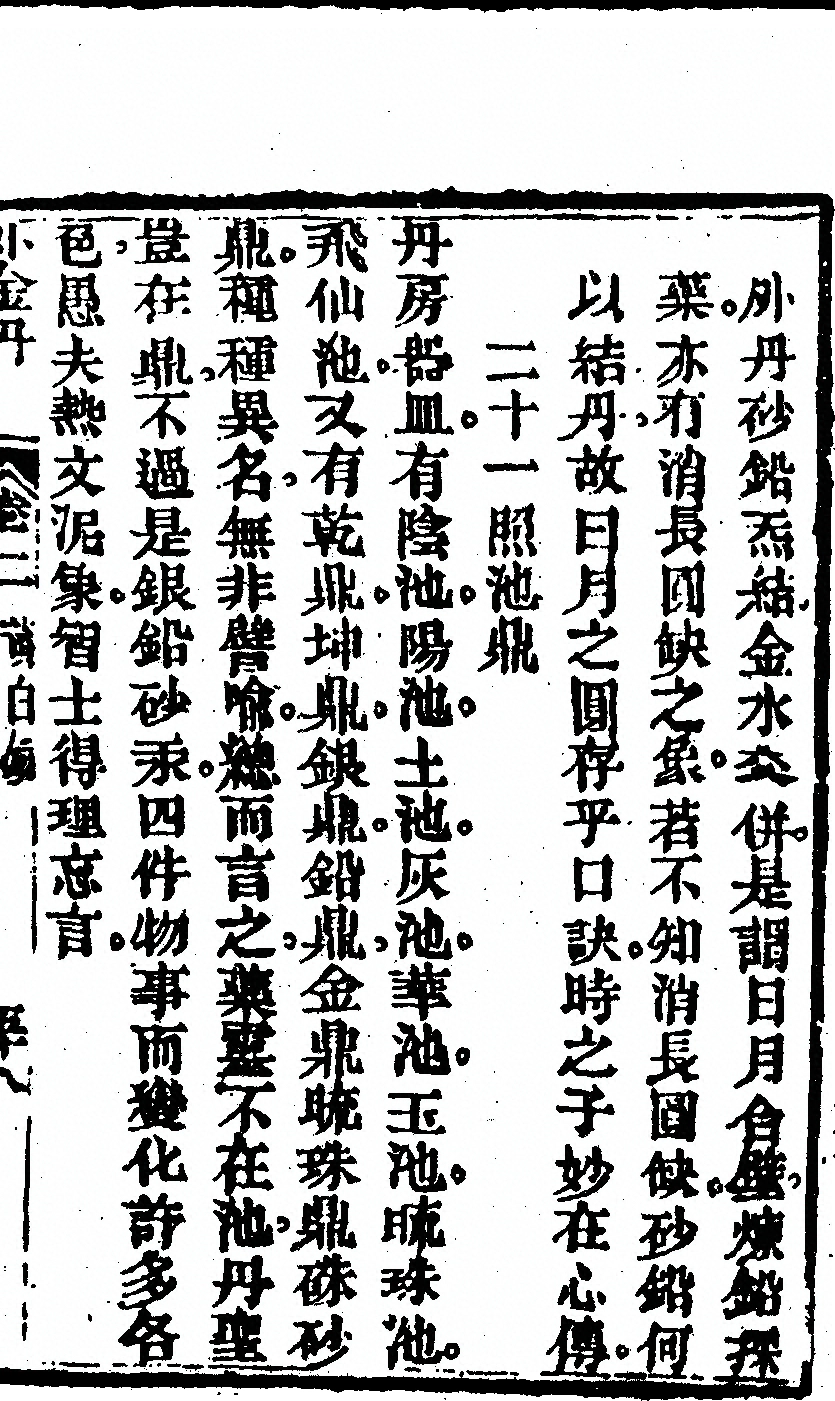 外丹砂鉛炁結金水交併是謂日月合璧煉鉛採
藥亦有消長圓缺之象若不知消長圓缺砂鉛何
以結丹故日月之圓存乎口訣時之子妙在心傳
二十一照池鼎
丹房器皿有陰池陽池土池灰池華池玉池硫珠池
飛仙池又有乾鼎坤鼎銀鼎鉛鼎金鼎硫珠鼎硃砂
鼎種種異名無非譬喻總而言之藥靈不在池丹聖
豈在鼎不過是銀鉛砂汞四件物事而變化許多各
色愚夫熱文泥象智士得理忘言
外金丹 卷二 黃白鏡